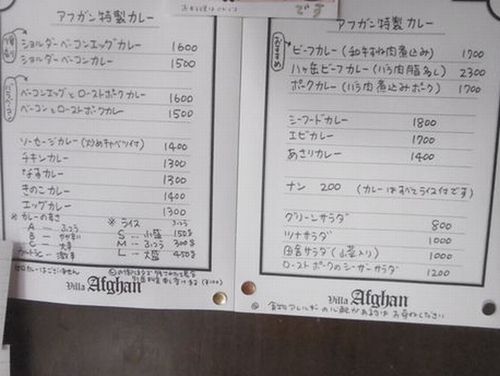 です
アフガン特製カレー
ショルダーベーコンエッグカレー 1600
ショルダーベーコンカレー 1500
ベーコンエッグとローストポークカレー 1600
ベーコンとローストポークカレー 1500
ソーセージカレー(炒めキャベツ付) 1400
チキンカレー 1300
なすカレー 1300
きのこカレー 1400
エッグカレー 1300
※カレーの辛さ
A — ふつう
B — やや辛い
C — 大辛
※ライス
S — 小盛 150g
M — ふつう 300g
L — 大盛 450g
Villa Afghan
アフガン特製カレー
おすすめ
ビーフカレー(和牛すね肉煮込み) 1700
八ヶ岳ビーフカレー(バラ肉脂多し) 2300
ポークカレー(バラ肉煮込みポーク) 1700
シーフードカレー 1800
エビカレー 1700
あさりカレー 1400
ナン 200 (カレーはすべてライス付です)
グリーンサラダ 800
ツナサラダ 1000
田舎サラダ 1000
ローストポークのシーザーサラダ 1200
Villa Afghan